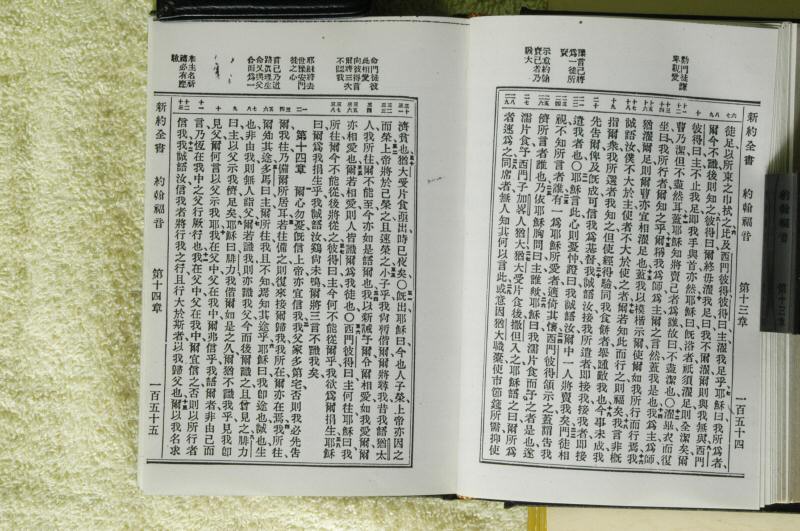 門徒謙
卑親愛
豫言己將
為一徒所
賣
示意約翰
賣己者乃
猶大
新約全書 約翰福音 第十三章 一百五十四
徒足以所束之巾拭之及西門彼得彼得曰主濯我足乎耶穌曰我所為者
爾今不識後則知之彼得曰爾終毋濯我足曰我不爾濯爾則與我無與西門
彼得曰主不止我足即手與首亦然耶穌曰既浴者祇須濯足則全潔矣爾
曹乃潔但不盡然耳蓋耶穌知將賣己者為誰故曰不盡潔也〇濯畢衣而復
坐曰我所行者爾知之乎爾稱我為師為主爾之言然蓋我是也我為主為師
猶濯爾足則爾曹亦宜相濯足蓋我以模楷示爾使爾如我所行而行焉我
誠語汝僕不大於主使者不大於使之者爾若知此而行之則福矣我言非概
指爾眾我所選者我知之但使經得驗同我食餅者舉踵敵我也今事未成我
先告爾俾及既成可信我為基督我誠語汝接我所遣者即接我接我者即接
遣我者也〇耶穌言此心則憂忡證曰我誠語汝爾中一人將賣我矣門徒相
視不知所言者誰有一門徒耶穌所愛者適倚其懷西門彼得頷示之蓋謂告我
儕所言者誰也乃依耶穌胸問曰主誰歟耶穌曰我濡片食而予之者是也遂
濡片食予西門子加畧人猶大猶大受片食後撒但入之耶穌語之曰爾所為
者速為之同席者無人知其何以言此或意因猶大職橐使市節筵所需抑使
命門徒彼
此相愛
向彼得言
爾將三次
不認我
耶穌將去
世慰安門
徒之心
言己乃道
路真理生
命又與父
合而為一
奉主名祈
禱必有應
新約全書 約翰福音 第十四章 一百五十五
濟貧也猶大受片食遄出時已夜矣〇既出耶穌曰今也人子榮上帝亦因之
而榮上帝將於己榮之且速榮之小子乎我尚暫偕爾爾將尋我昔我語猶太
人我所往爾不能至今亦如是語爾也我以新誡予爾令爾相愛如我愛爾爾
亦相愛也爾若相愛則人皆識爾為我徒也〇西門彼得曰主何往耶穌曰我
所往爾今不能從後將從之彼得曰主今何不能從爾乎我欲為爾捐生耶穌
曰爾為我捐生乎我誠語汝雞尚未鳴爾將三言不識我矣
第十四章 爾心勿憂既信上帝亦宜信我我父家多第宅否則我必先告
爾我往乃備爾所居耳若往備之則復來接爾歸我我所在爾亦在焉我所往
爾知其途多馬曰主爾所往我且不知焉知其途乎耶穌曰我即途也誠也生
也非由我則無人詣父爾若識我則亦識我父今而後爾識之且曾見之腓力
曰主以父示我儕足矣耶穌曰腓力我偕爾如是之久爾猶不識我乎見我即
見父爾何言以父示我耶我在父中父在我中爾弗信乎我語爾者非由己而
言乃恆在我中之父行厥事也我在父中父在我中爾宜信之否則以所行者
信我我誠語汝信我者將行我之行且行大於斯者以我歸父也爾以我名求